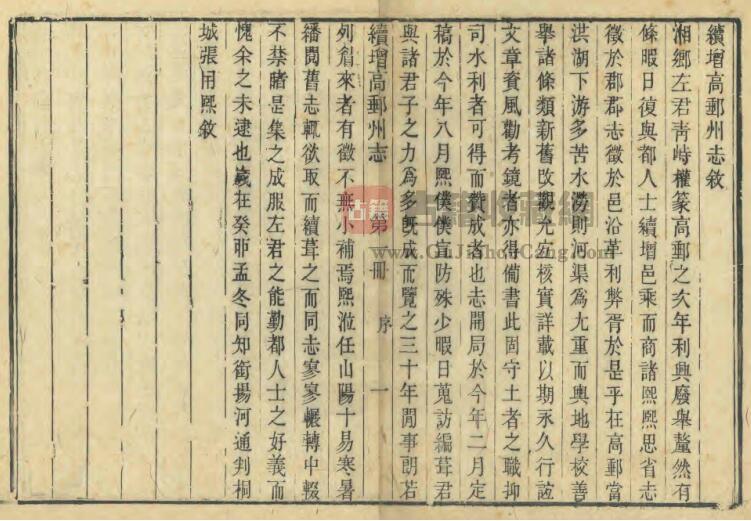 續增高郵州志敘
湘鄉左君青峙權篆高郵之次年利興廢舉釐然有
條暇日復與都人士續增邑乘而商諸熙熙思省志
徵於郡郡志徵於邑沿革利弊胥於是乎在高郵當
洪湖下游多苦水澇則河渠為尤重而輿地學校善
舉諸條類新舊改觀尤宜核實詳載以期永久行誼
文章資風勸考鏡者亦得備書此固守土者之職抑
司水利者可得而贊成者也志開局於今年二月定
稿於今年八月熙僕僕宣防殊少暇日蒐訪編葺君
與諸君子之力為多既成而覽之三十年閒事朗若
續增高郵州志 第一冊 序 一
列眉來者有徵不無小補焉熙涖任山陽十易寒暑
繙閱舊志輒欲取而續葺之而同志寥寥輾轉中輟
不禁睹是集之成服左君之能勤都人士之好義而
愧余之未逮也歲在癸卯孟冬同知銜揚河通判桐
城張用熙敘
古籍書收藏網
www.GuJiShuCang.Com